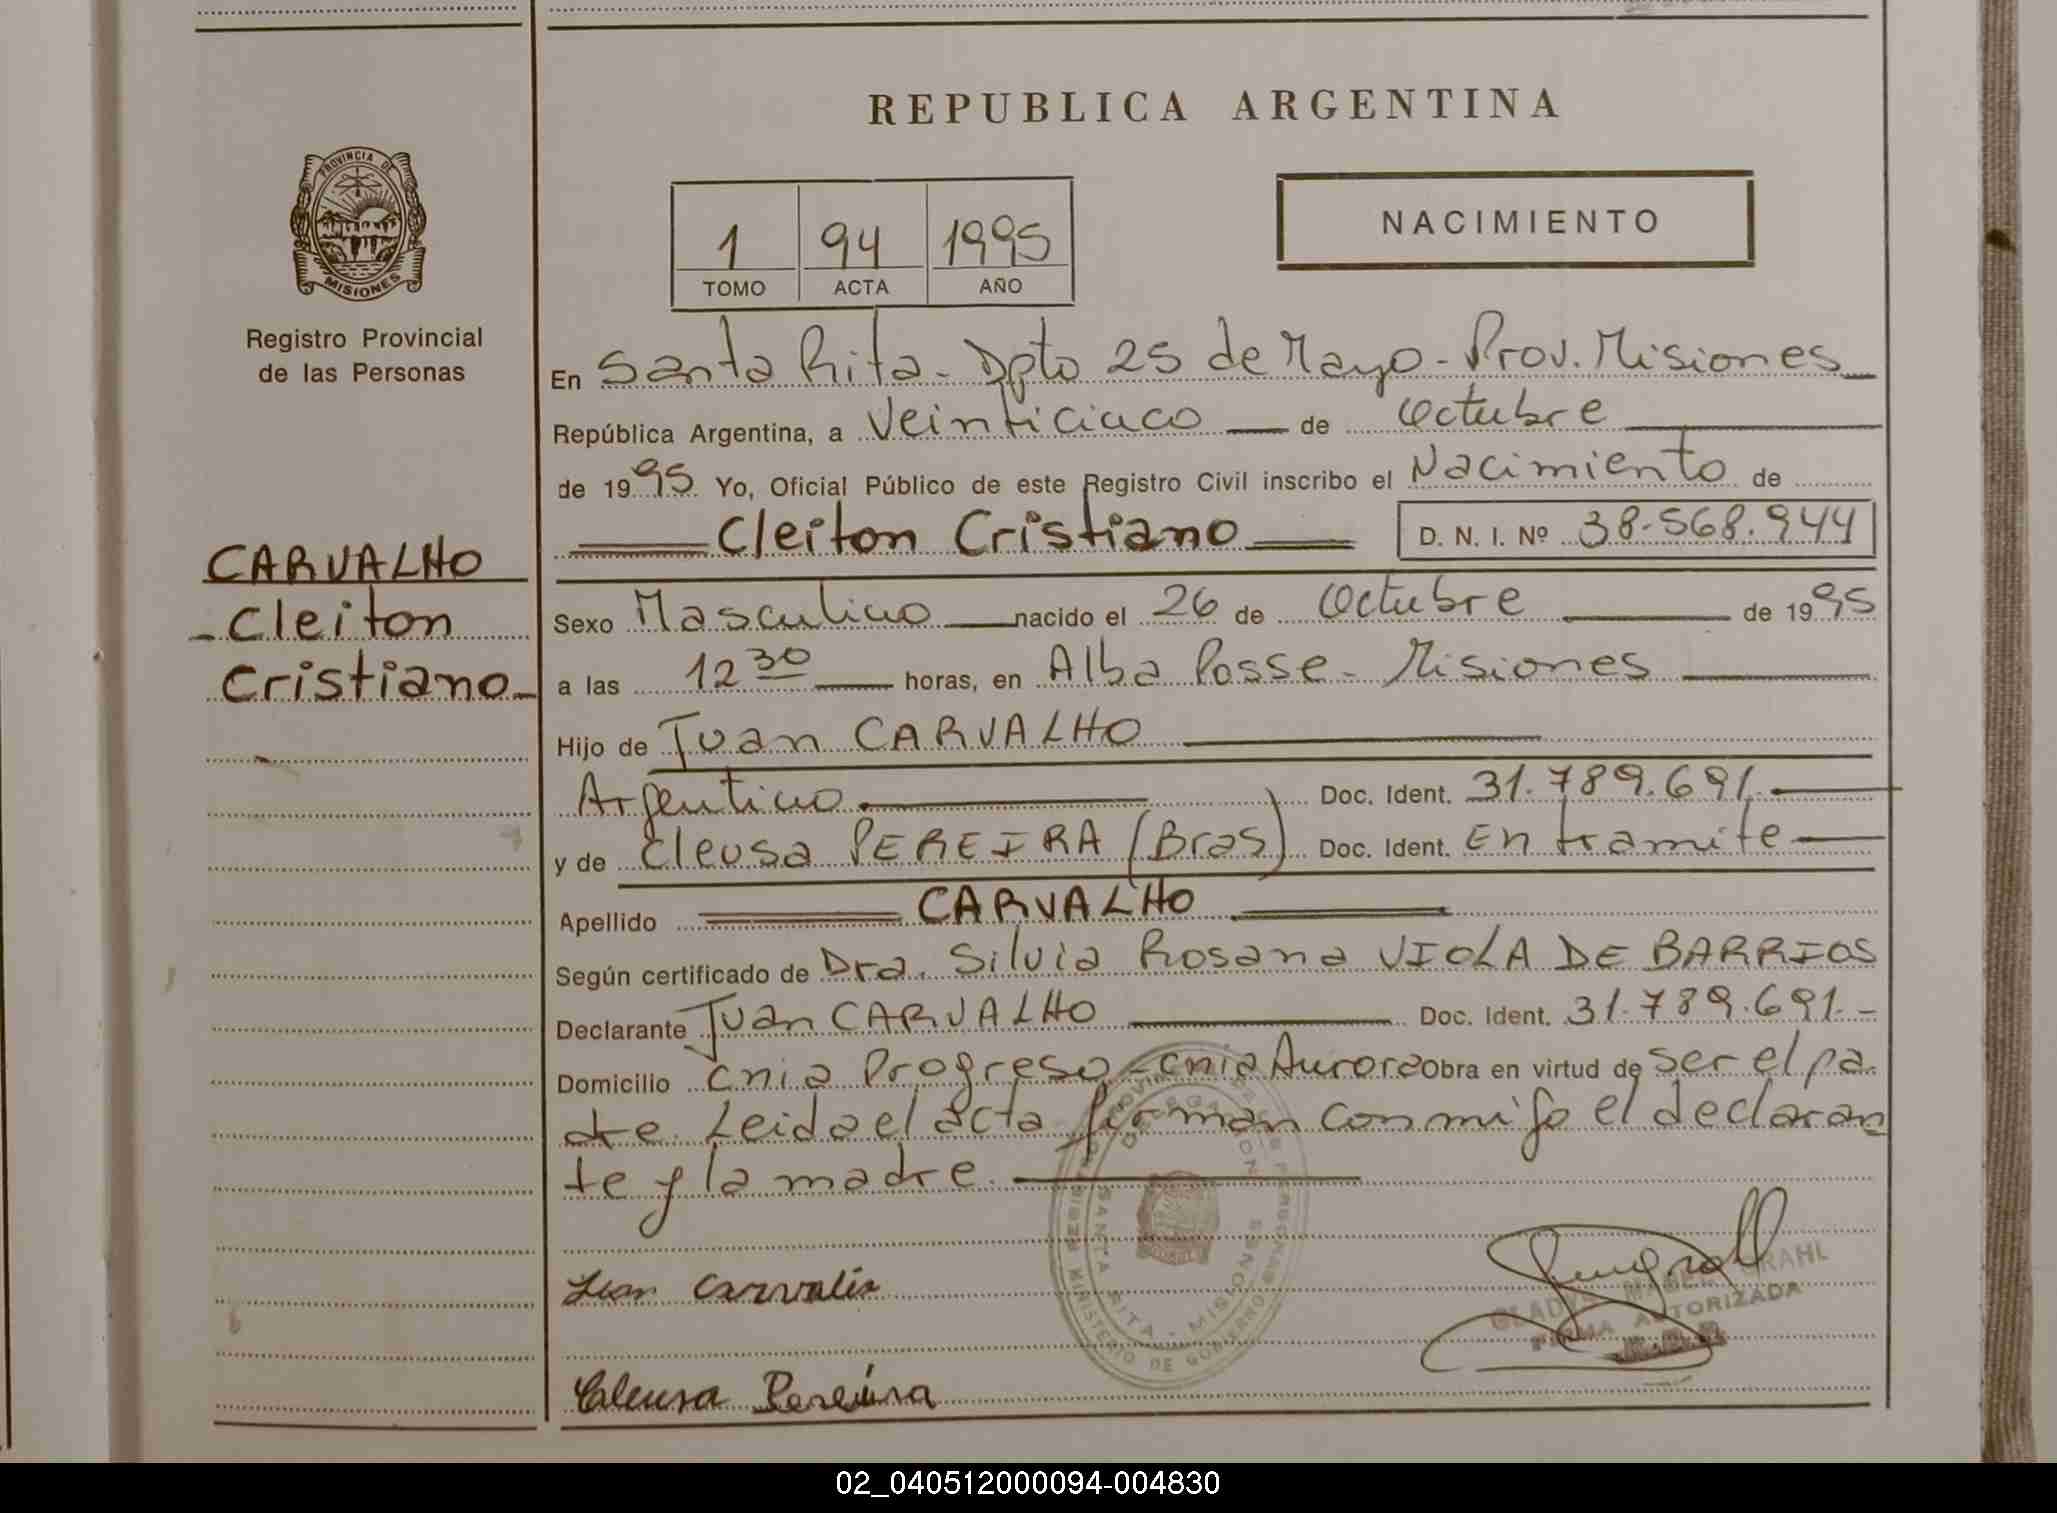 REPUBLICA ARGENTINA
PROVINCIA DE
MISIONES
Registro Provincial
de las Personas
1 94 1995
TOMO ACTA AÑO
NACIMIENTO
CARVALHO
- Cleiton
Cristiano -
En Santa Rita - Dpto 25 de Mayo - Prov. Misiones
República Argentina, a Veinticinco de Octubre
de 1995 Yo, Oficial Público de este Registro Civil inscribo el Nacimiento de
Cleiton Cristiano D. N. I. Nº 38.568.944
Sexo Masculino nacido el 26 de Octubre de 1995
a las 12 30 horas, en Alba Posse - Misiones
Hijo de Juan CARVALHO
Argentino Doc. Ident. 31.789.691
y de Cleusa PEREIRA (Bras) Doc. Ident. En tramite
Apellido CARVALHO
Según certificado de Dra. Silvia Rosana VIOLA DE BARRIOS
Declarante Juan CARVALHO Doc. Ident. 31.789.691.-
Domicilio Cnia Progreso - Cnia Aurora Obra en virtud de ser el pa-
dre. Leida el acta firman conmigo el declaran
te y la madre.
SANTA RITA - MISIONES
MINISTERIO DE GOBIERNO
Juan Carvalho
GLADYS MABEL GRAHL
FIRMA AUTORIZADA
Cleusa Pereira
02_040512000094-004830